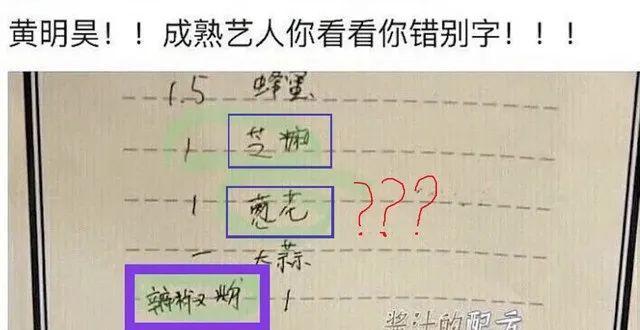 黄明昊！！成熟艺人你看看你错别字！！！
1.5 蜂蜜
1 芝
1 蔥花
???
一 大蒜
粉 1
酱汁的配方